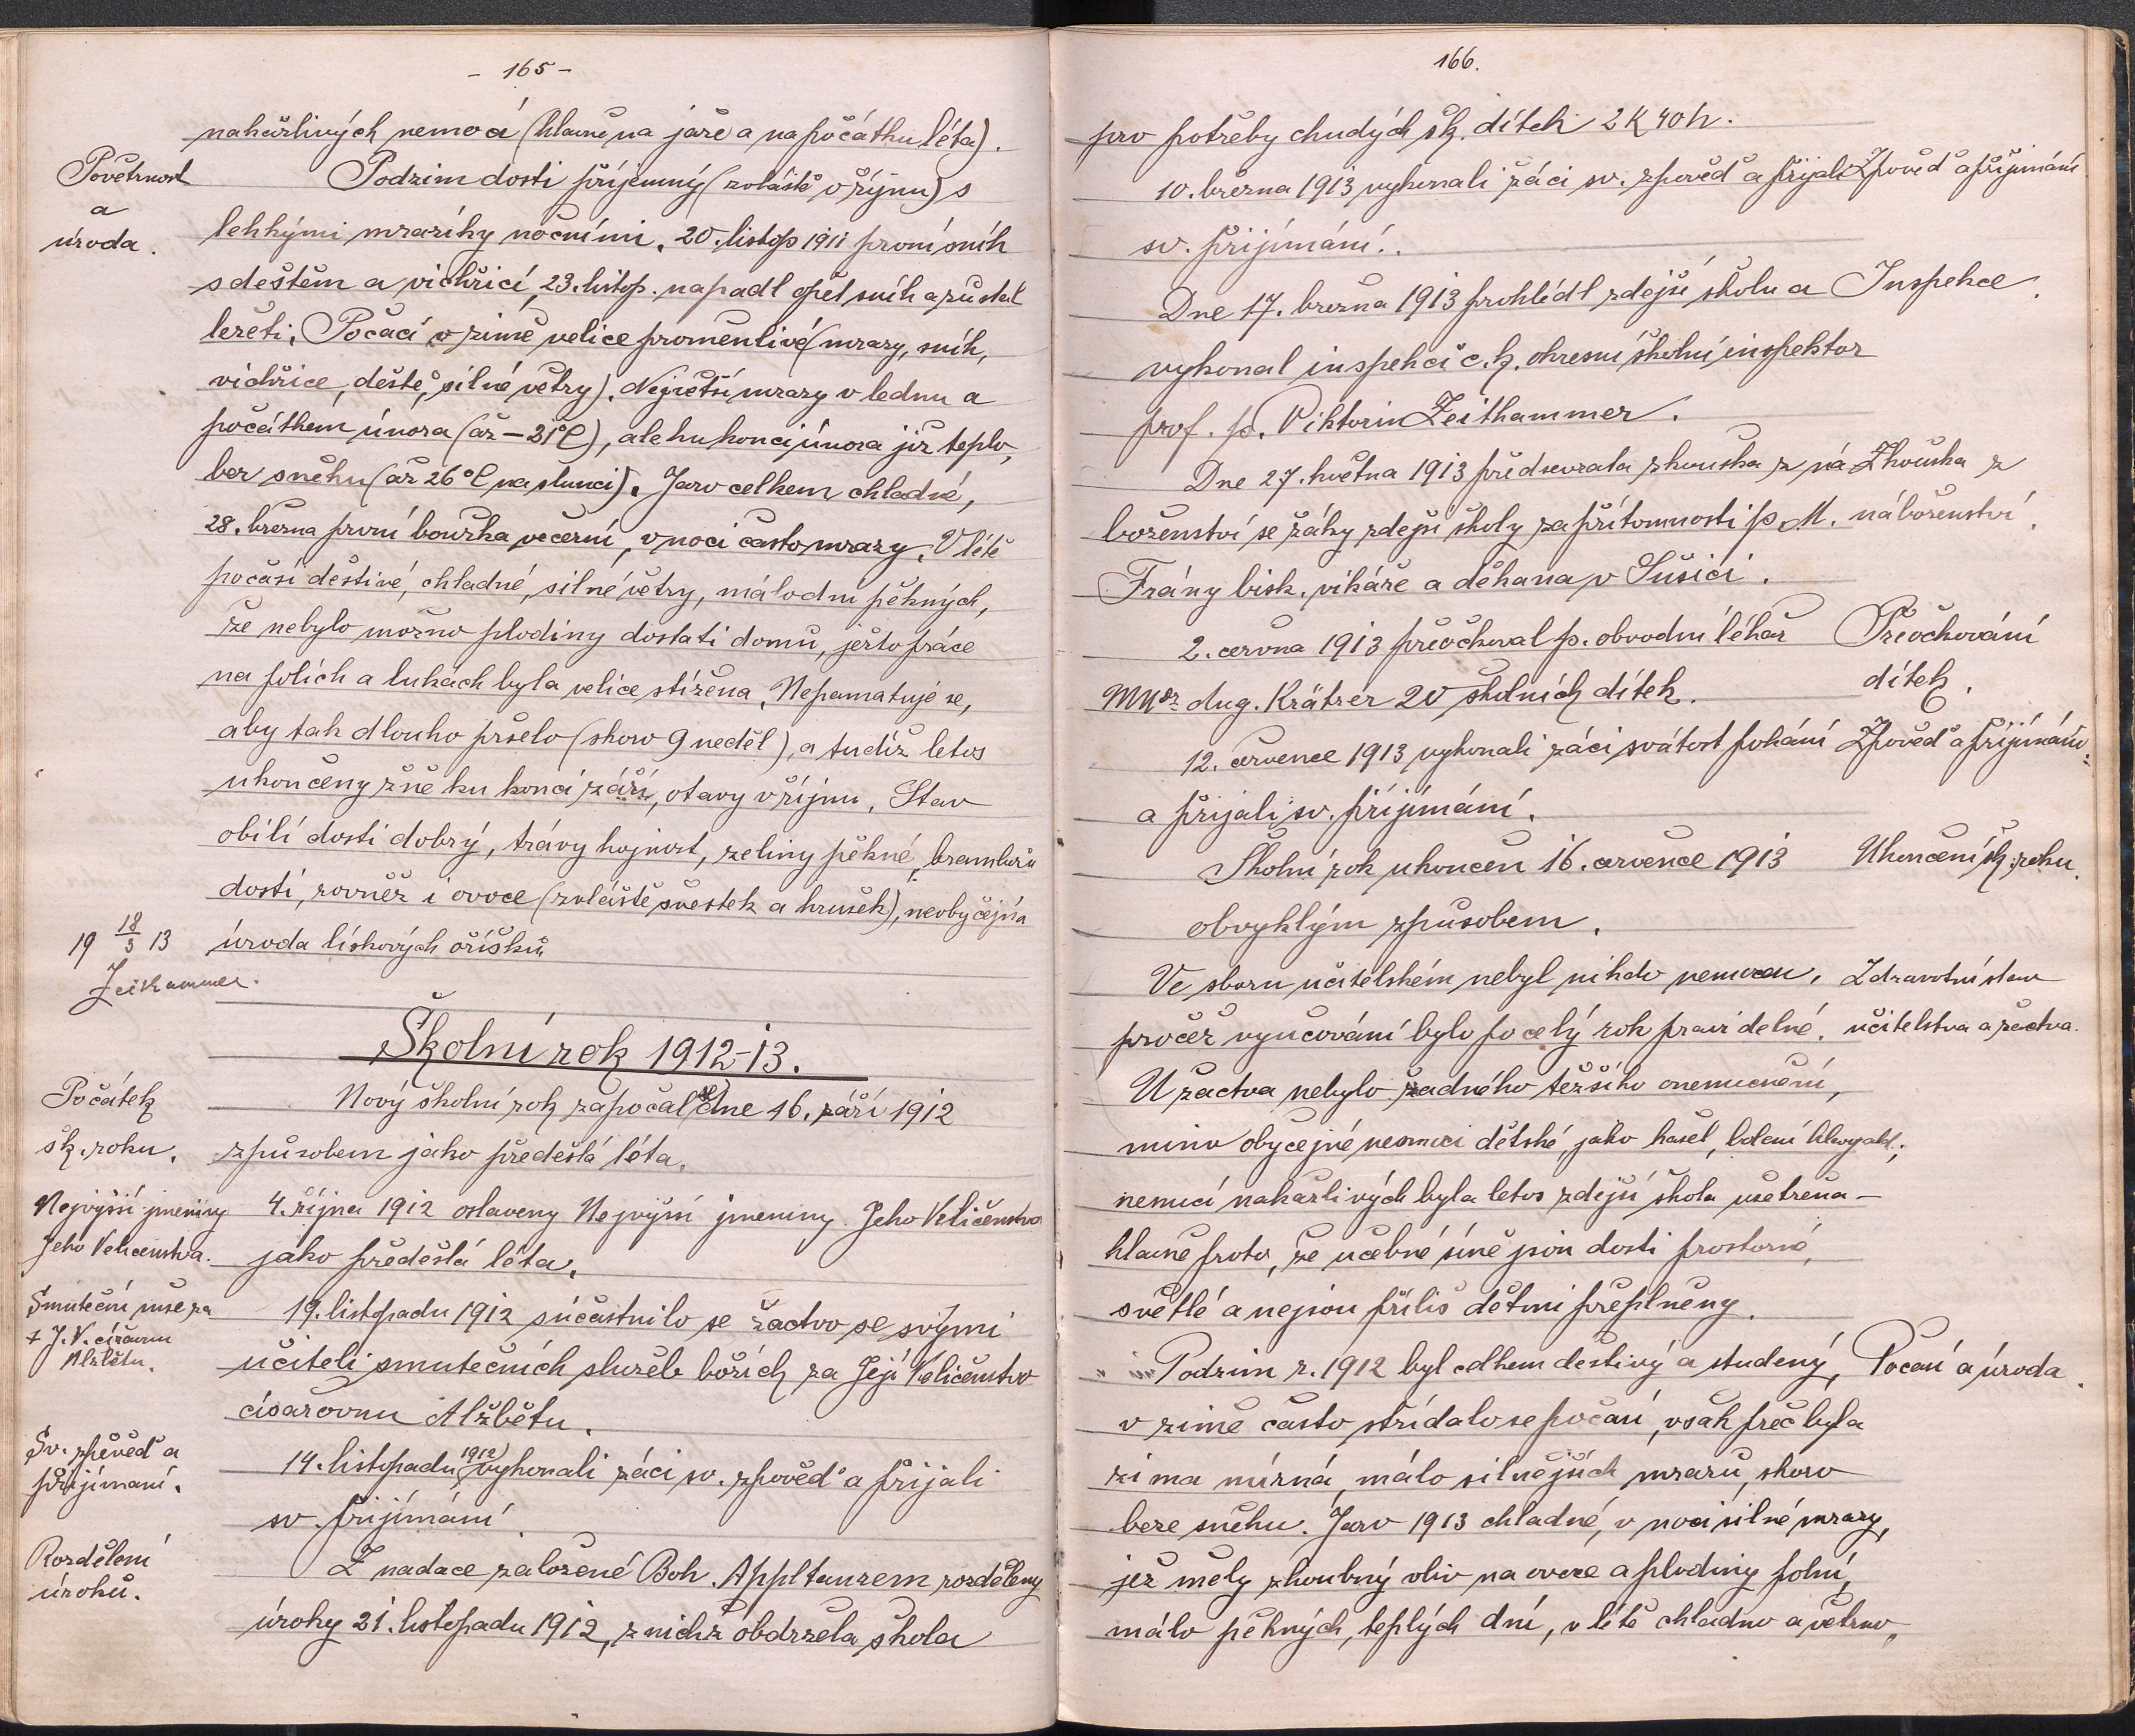 - 165 -
nakažlivých nemocí (hlavně na jaře a na počátku léta).
Povětrnost
a
úroda.
Podzim dosti příjemný (zvláště v říjnu) s
lehkými mrazíky nočními. 20. listop 1911 první sníh
s deštěm a vichřicí, 23. listop. napadl opět sníh a zůstal
ležeti. Počasí v zimě velice proměnlivé (mrazy, sníh,
vichřice, deště, silné větry). Největší mrazy v lednu a
počátkem února (až -21°C), ale ku konci února již teplo,
bez sněhu (až 26°C na slunci). Jaro celkem chladné,
28. března první bouřka večerní, v noci často mrazy. V létě
počasí deštivé, chladné, silné větry, málo dnů pěkných,
že nebylo možno plodiny dostati domů, ježto práce
na polích a lukách byla velice stížena. Nepamatuje se,
aby tak dlouho pršelo (skoro 9 neděl), a tudíž letos
ukončeny žně ku konci září, otavy v říjnu. Stav
obilí dosti dobrý, trávy hojnost, zeliny pěkné, bramborů
dosti, rovněž i ovoce (zvláště švestek a hrušek), neobyčejná
úroda lískových oříšků.
19 18/3 13
Zeithammer.
Školní rok 1912-13.
Počátek
šk. roku.
Nový školní rok započal se dne 16. září 1912
způsobem jako předešlá léta.
Nejvyšší jmeniny
Jeho Veličenstva.
4. října 1912 oslaveny Nejvyšší jmeniny Jeho Veličenstva
jako předešlá léta.
Smuteční mše za
+ J. V. císařovnu
Alžbětu.
19. listopadu 1912 súčastnilo se žactvo se svými
učiteli smutečních služeb božích za Její Veličenstvo
císařovnu Alžbětu.
Sv. zpověď a
přijímaní.
14. listopadu 1912 vykonali žáci sv. zpověď a přijali
sv. přijímání
Rozdělení
úroků.
Z nadace založené Boh. Appltauerem rozděleny
úroky 21. listopadu 1912, z nichž obdržela škola
166.
pro potřeby chudých šk. dítek 2 K 40 h.
10. března 1913 vykonali žáci sv. zpověď a přijali
Zpověď a přijímání
sv. přijímání.
Dne 17. března 1913 prohlédl zdejší školu a
Inspekce.
vykonal inspekci c. k. okresní školní inspektor
prof. p. Viktorin Zeithammer.
Dne 27. května 1913 předsevzata zkouška z ná
Zkouška z
náboženství.
boženství se žáky zdejší školy za přítomnosti p. M.
Frány bisk. vikáře a děkana v Sušici.
2. června 1913 přeočkoval p. obvodní lékař
Přeočkování
dítek.
MUDr Aug. Krätzer 20 školních dítek.
12. července 1913 vykonali žáci svátost pokání
Zpověď a přijímání.
a přijali sv. přijímání.
Školní rok ukončen 16. července 1913
Ukončení šk. roku.
obvyklým způsobem.
Ve sboru učitelském nebyl nikdo nemocen,
Zdravotní stav
učitelstva a žactva.
pročež vyučování bylo po celý rok pravidelné.
U žactva nebylo žadného těžšího onemocnění,
mimo obyčejné nemoci dětské, jako kašel, bolení hlavy atd.;
nemocí nakažlivých byla letos zdejší škola ušetřena -
hlavně proto, že učebné síně jsou dosti prostorné,
světlé a nejsou příliš dětmi přeplněny.
Podzim r. 1912 byl celkem deštivý a studený,
Počasí a úroda.
v zimě často střídalo se počasí, však přec byla
zima mírná, málo silnějších mrazů, skoro
beze sněhu. Jaro 1913 chladné, v noci silné mrazy,
jež měly zhoubný vliv na ovoce a plodiny polní,
málo pěkných, teplých dní, v létě chladno a větrno,